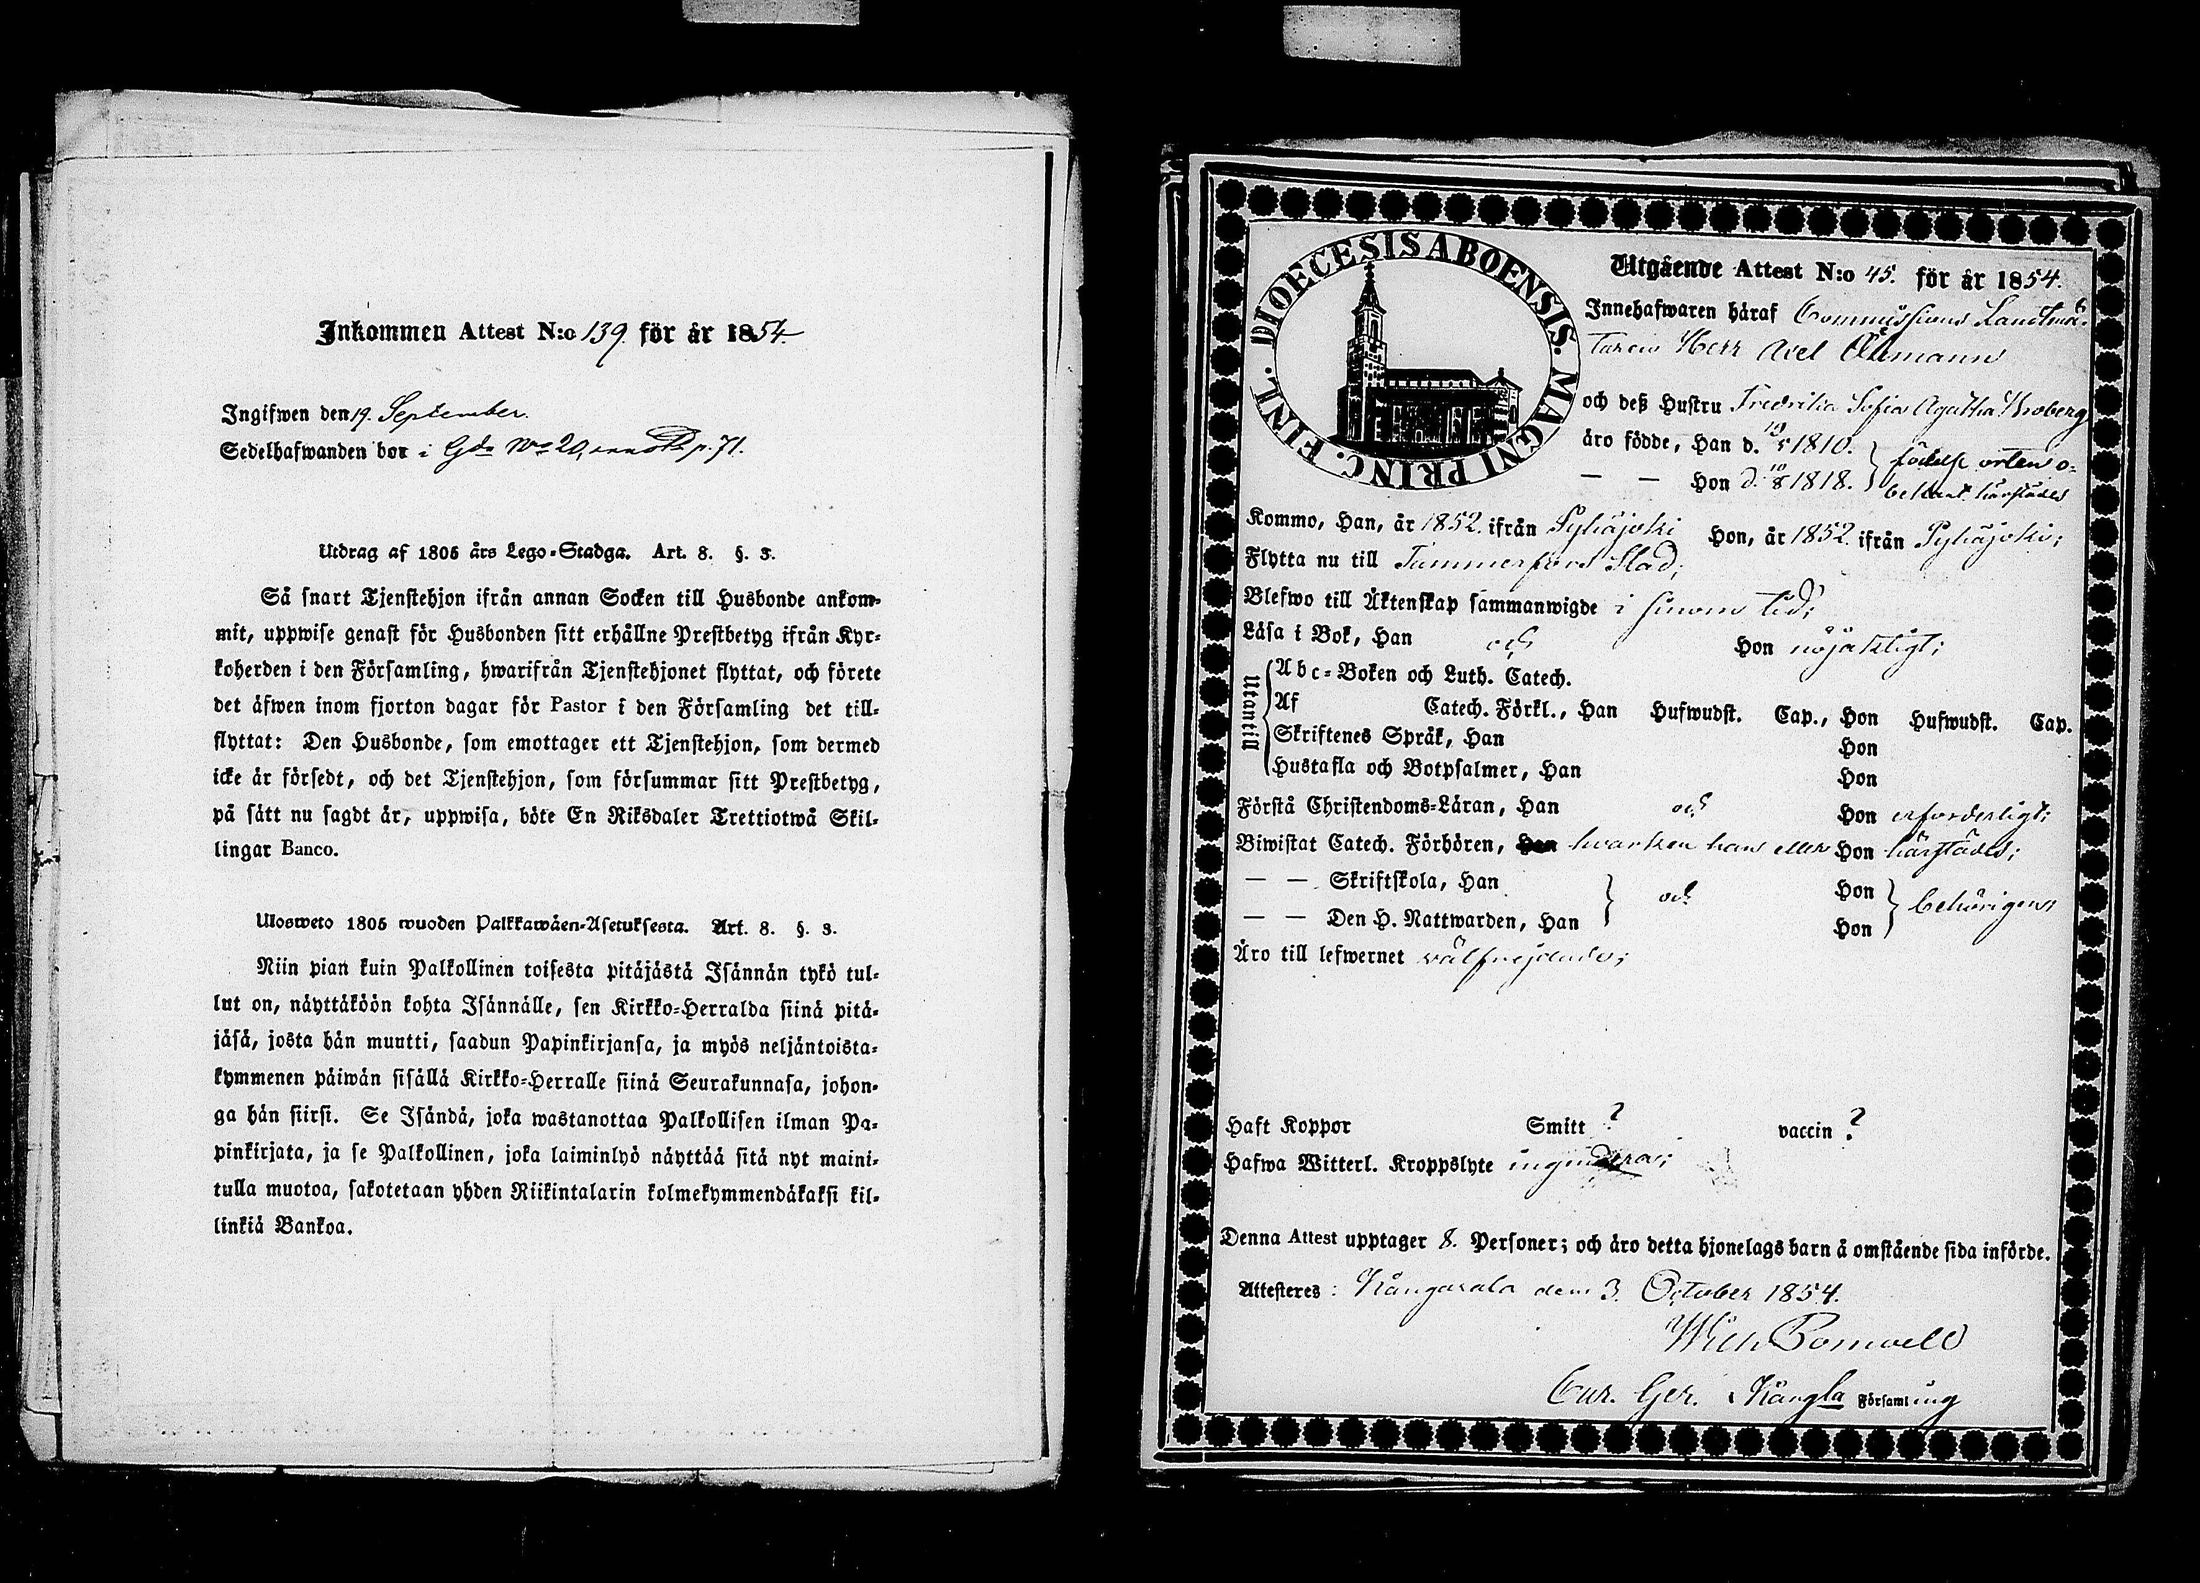 Inkommen Attest N:o 139. för år 1854.
Ingifwen den 19. September.
Sedelhafwanden bor i Gda No 20, p. 71.
Utdrag af 1805 års Lego-Stadga. Art. 8. §. 3.
Så snart Tjenstehjon ifrån annan Socken till Husbonde ankom-
mit, uppwise genast för Husbonden sitt erhållne Prestbetyg ifrån Kyr-
koherden i den Församling, hwarifrån Tjenstehjonet flyttat, och förete
det äfwen inom fjorton dagar för Pastor i den Församling det till-
flyttat: Den Husbonde, som emottager ett Tjenstehjon, som dermed
icke är försedt, och det Tjenstehjon, som försummar sitt Prestbetyg,
på sätt nu sagdt är, uppwisa, böte En Riksdaler Trettiotwå Skil-
lingar Banco.
Ulosweto 1805 wuoden Palkkawäen-Asetuksesta. Art. 8. §. 3.
Niin pian kuin Palkollinen toisesta pitäjästä Isännän tykö tul-
lut on, näyttäköön kohta Isännälle, sen Kirkko-Herralda siinä pitä-
jäsä, josta hän muutti, saadun Papinkirjansa, ja myös neljäntoista-
kymmenen päiwän sisällä Kirkko-Herralle siinä Seurakunnasa, johon-
ga hän siirsi. Se Isändä, joka wastanottaa Palkollisen ilman Pa-
pinkirjata, ja se Palkollinen, joka laiminlyö näyttää sitä nyt maini-
tulla muotoa, sakotetaan yhden Riikintalarin kolmekymmendäkaksi kil-
linkiä Bankoa.
DIOECESIS ABOENSIS. MAGNI PRINC. FINL.
Utgående Attest N:o 45. för år 1854.
Innehafwaren häraf Commissions Landtmä-
taren Herr Axel
och deß Hustru Fredrika Sofia Agatha Broberg
äro födde, Han d. 19/5 1810. } födelse orten o-
— — Hon d. 10/8 1818. } bekant härstädes
Kommo, Han, år 1852. ifrån Pyhäjoki Hon, år 1852. ifrån Pyhäjoki;
Flytta nu till Tammerfors Stad;
Blefwo till Äktenskap sammanwigde i sinom tid;
Läsa i Bok, Han och Hon nöjaktigt;
Utantill
Abc-Boken och Luth. Catech.
Af Catech. Förkl., Han Hufwudst. Cap., Hon Hufwudst. Cap.
Skriftenes Språk, Han Hon
Hustafla och Botpsalmer, Han Hon
Förstå Christendoms-Läran, Han och Hon erforderligt;
Biwistat Catech. Förhören, Han hwarken han eller Hon härstädes;
— — Skriftskola, Han } och Hon } behörigen;
— — Den H. Nattwarden, Han Hon
Äro till lefwernet välfrejdade;
Haft Koppor Smitt ? vaccin ?
Hafwa Witterl. Kroppslyte ingendera;
Denna Attest upptager 8. Personer; och äro detta hjonelags barn å omstående sida införde.
Attesteres: Kangasala den 3. October 1854.
Wilh. Bomwell
Cur. Ger. i Kangla Församling